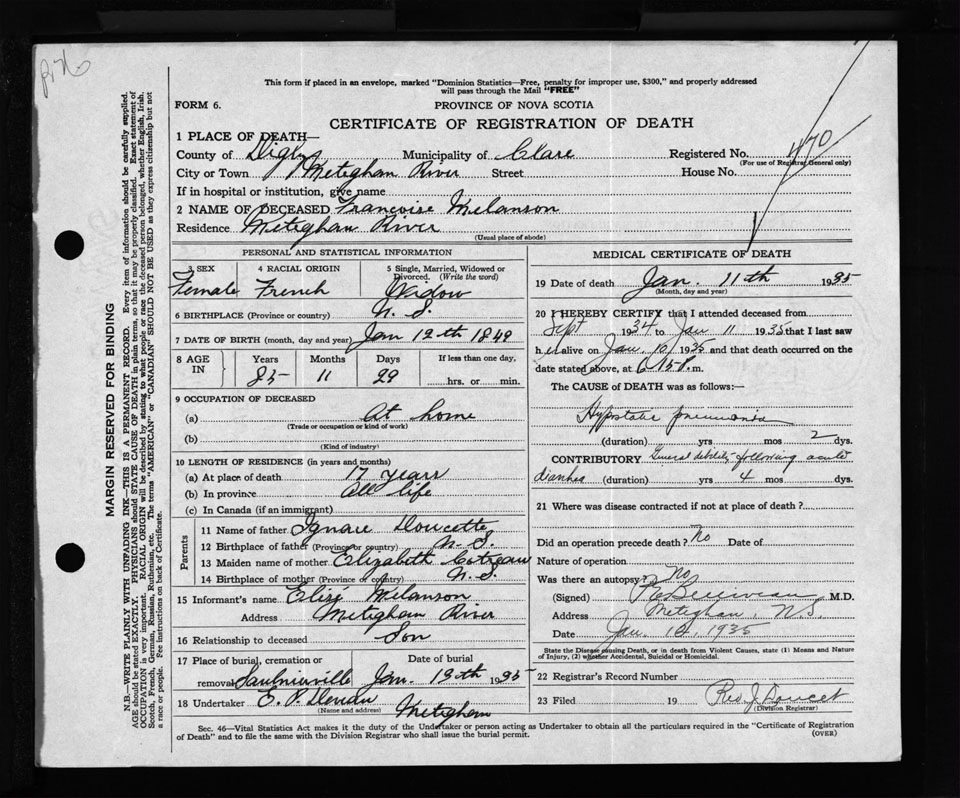 This form if placed in an envelope, marked "Dominion Statistics—Free, penalty for improper use, $300," and properly addressed
will pass through the Mail "FREE"
FORM 6. PROVINCE OF NOVA SCOTIA
CERTIFICATE OF REGISTRATION OF DEATH
1 PLACE OF DEATH—
County of Digby Municipality of Clare Registered No. 470
(For use of Registrar General only)
City or Town Meteghan River Street House No.
If in hospital or institution, give name
2 NAME OF DECEASED Francoise Melanson
Residence Meteghan River
(Usual place of abode)
PERSONAL AND STATISTICAL INFORMATION
3 SEX 4 RACIAL ORIGIN 5 Single, Married, Widowed or
Divorced. (Write the word)
Female French Widow
6 BIRTHPLACE (Province or country) N. S.
7 DATE OF BIRTH (month, day and year) Jan 12th 1849
8 AGE IN Years Months Days If less than one day,
85 11 29 hrs. or min.
9 OCCUPATION OF DECEASED
(a) At home
(Trade or occupation or kind of work)
(b)
(Kind of industry)
10 LENGTH OF RESIDENCE (in years and months)
(a) At place of death 17 years
(b) In province All life
(c) In Canada (if an immigrant)
Parents
11 Name of father Ignace Doucette
12 Birthplace of father (Province or country) N. S.
13 Maiden name of mother Elizabeth Cotreau
14 Birthplace of mother (Province or country) N. S.
15 Informant's name Melanson
Address Meteghan River
16 Relationship to deceased Son
17 Place of burial, cremation or Date of burial
removal Saulnierville Jan. 15th 1935
18 Undertaker E. P. Meteghan
(Name and address)
MEDICAL CERTIFICATE OF DEATH
19 Date of death Jan. 11th 1935
(Month, day and year)
20 I HEREBY CERTIFY that I attended deceased from
Sept 1934 to Jan 11 1935 that I last saw
her alive on Jan 10 1935 and that death occurred on the
date stated above, at P.m.
The CAUSE of DEATH was as follows:—
Hypostatic pneumonia
(duration) yrs mos 2 dys.
CONTRIBUTORY General debility following acute
diarrhea (duration) yrs 4 mos dys.
21 Where was disease contracted if not at place of death?
Did an operation precede death? No Date of
Nature of operation
Was there an autopsy? No
(Signed) Belliveau M.D.
Address Meteghan, N.S.
Date Jan. 1935
State the Disease causing Death, or in death from Violent Causes, state (1) Means and Nature
of Injury, (2) whether Accidental, Suicidal or Homicidal.
22 Registrar's Record Number
23 Filed 19 Rev J Doucet
(Division Registrar)
Sec. 46—Vital Statistics Act makes it the duty of the Undertaker or person acting as Undertaker to obtain all the particulars required in the "Certificate of Registration
of Death" and to file the same with the Division Registrar who shall issue the burial permit. (OVER)
MARGIN RESERVED FOR BINDING
N.B.—WRITE PLAINLY WITH UNFADING INK—THIS IS A PERMANENT RECORD. Every item of information should be carefully supplied.
AGE should be stated EXACTLY. PHYSICIANS should STATE CAUSE OF DEATH in plain terms, so that it may be properly classified. Exact statement of
OCCUPATION is very important. RACIAL ORIGIN will be described by stating to what people or race the deceased person belonged, whether English, Irish,
Scotch, French, German, Russian, Ruthenian, etc. The terms "AMERICAN" or "CANADIAN" SHOULD NOT BE USED as they express citizenship but not
a race or people. Fee Instructions on back of Certificate.